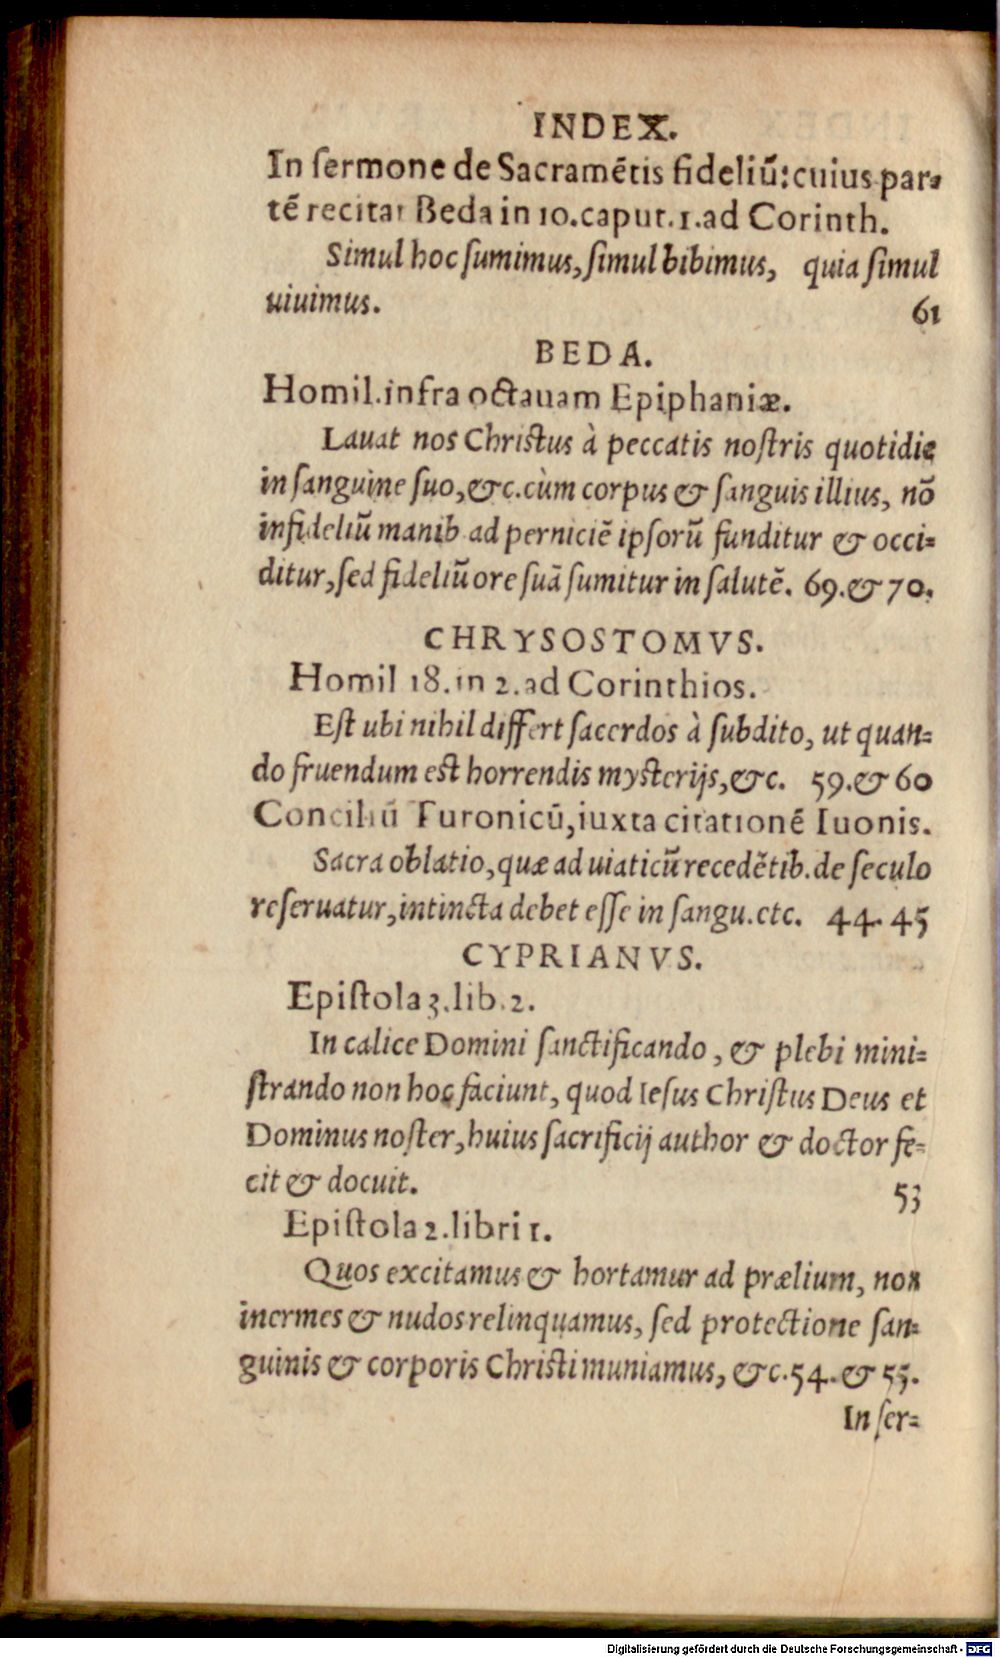 INDEX.
In sermone de Sacramētis fideliū: cuius par-
tē recitat Beda in 10. caput. 1. ad Corinth.
Simul hoc sumimus, simul bibimus, quia simul
uiuimus. 61
BEDA.
Homil. infra octauam Epiphaniæ.
Lauat nos Christus à peccatis nostris quotidie
in sanguine suo, &c. cùm corpus & sanguis illius, nō
infideliū manib ad perniciē ipsorū funditur & occi-
ditur, sed fideliū ore suā sumitur in salutē. 69. & 70.
CHRYSOSTOMVS.
Homil 18. in 2. ad Corinthios.
Est ubi nihil differt sacerdos à subdito, ut quan-
do fruendum est horrendis mysterijs, &c. 59. & 60
Conciliū Turonicū, iuxta citationē Iuonis.
Sacra oblatio, quæ ad uiaticū recedētib. de seculo
reseruatur, intincta debet esse in sangu. etc. 44. 45
CYPRIANVS.
Epistola 3. lib. 2.
In calice Domini sanctificando, & plebi mini-
strando non hoc faciunt, quod Iesus Christus Deus et
Dominus noster, huius sacrificij author & doctor fe-
cit & docuit. 53
Epistola 2. libri 1.
Quos excitamus & hortamur ad prælium, non
inermes & nudos relinquamus, sed protectione san-
guinis & corporis Christi muniamus, &c. 54. & 55.
In ser-
Digitalisierung gefördert durch die Deutsche Forschungsgemeinschaft - DFG